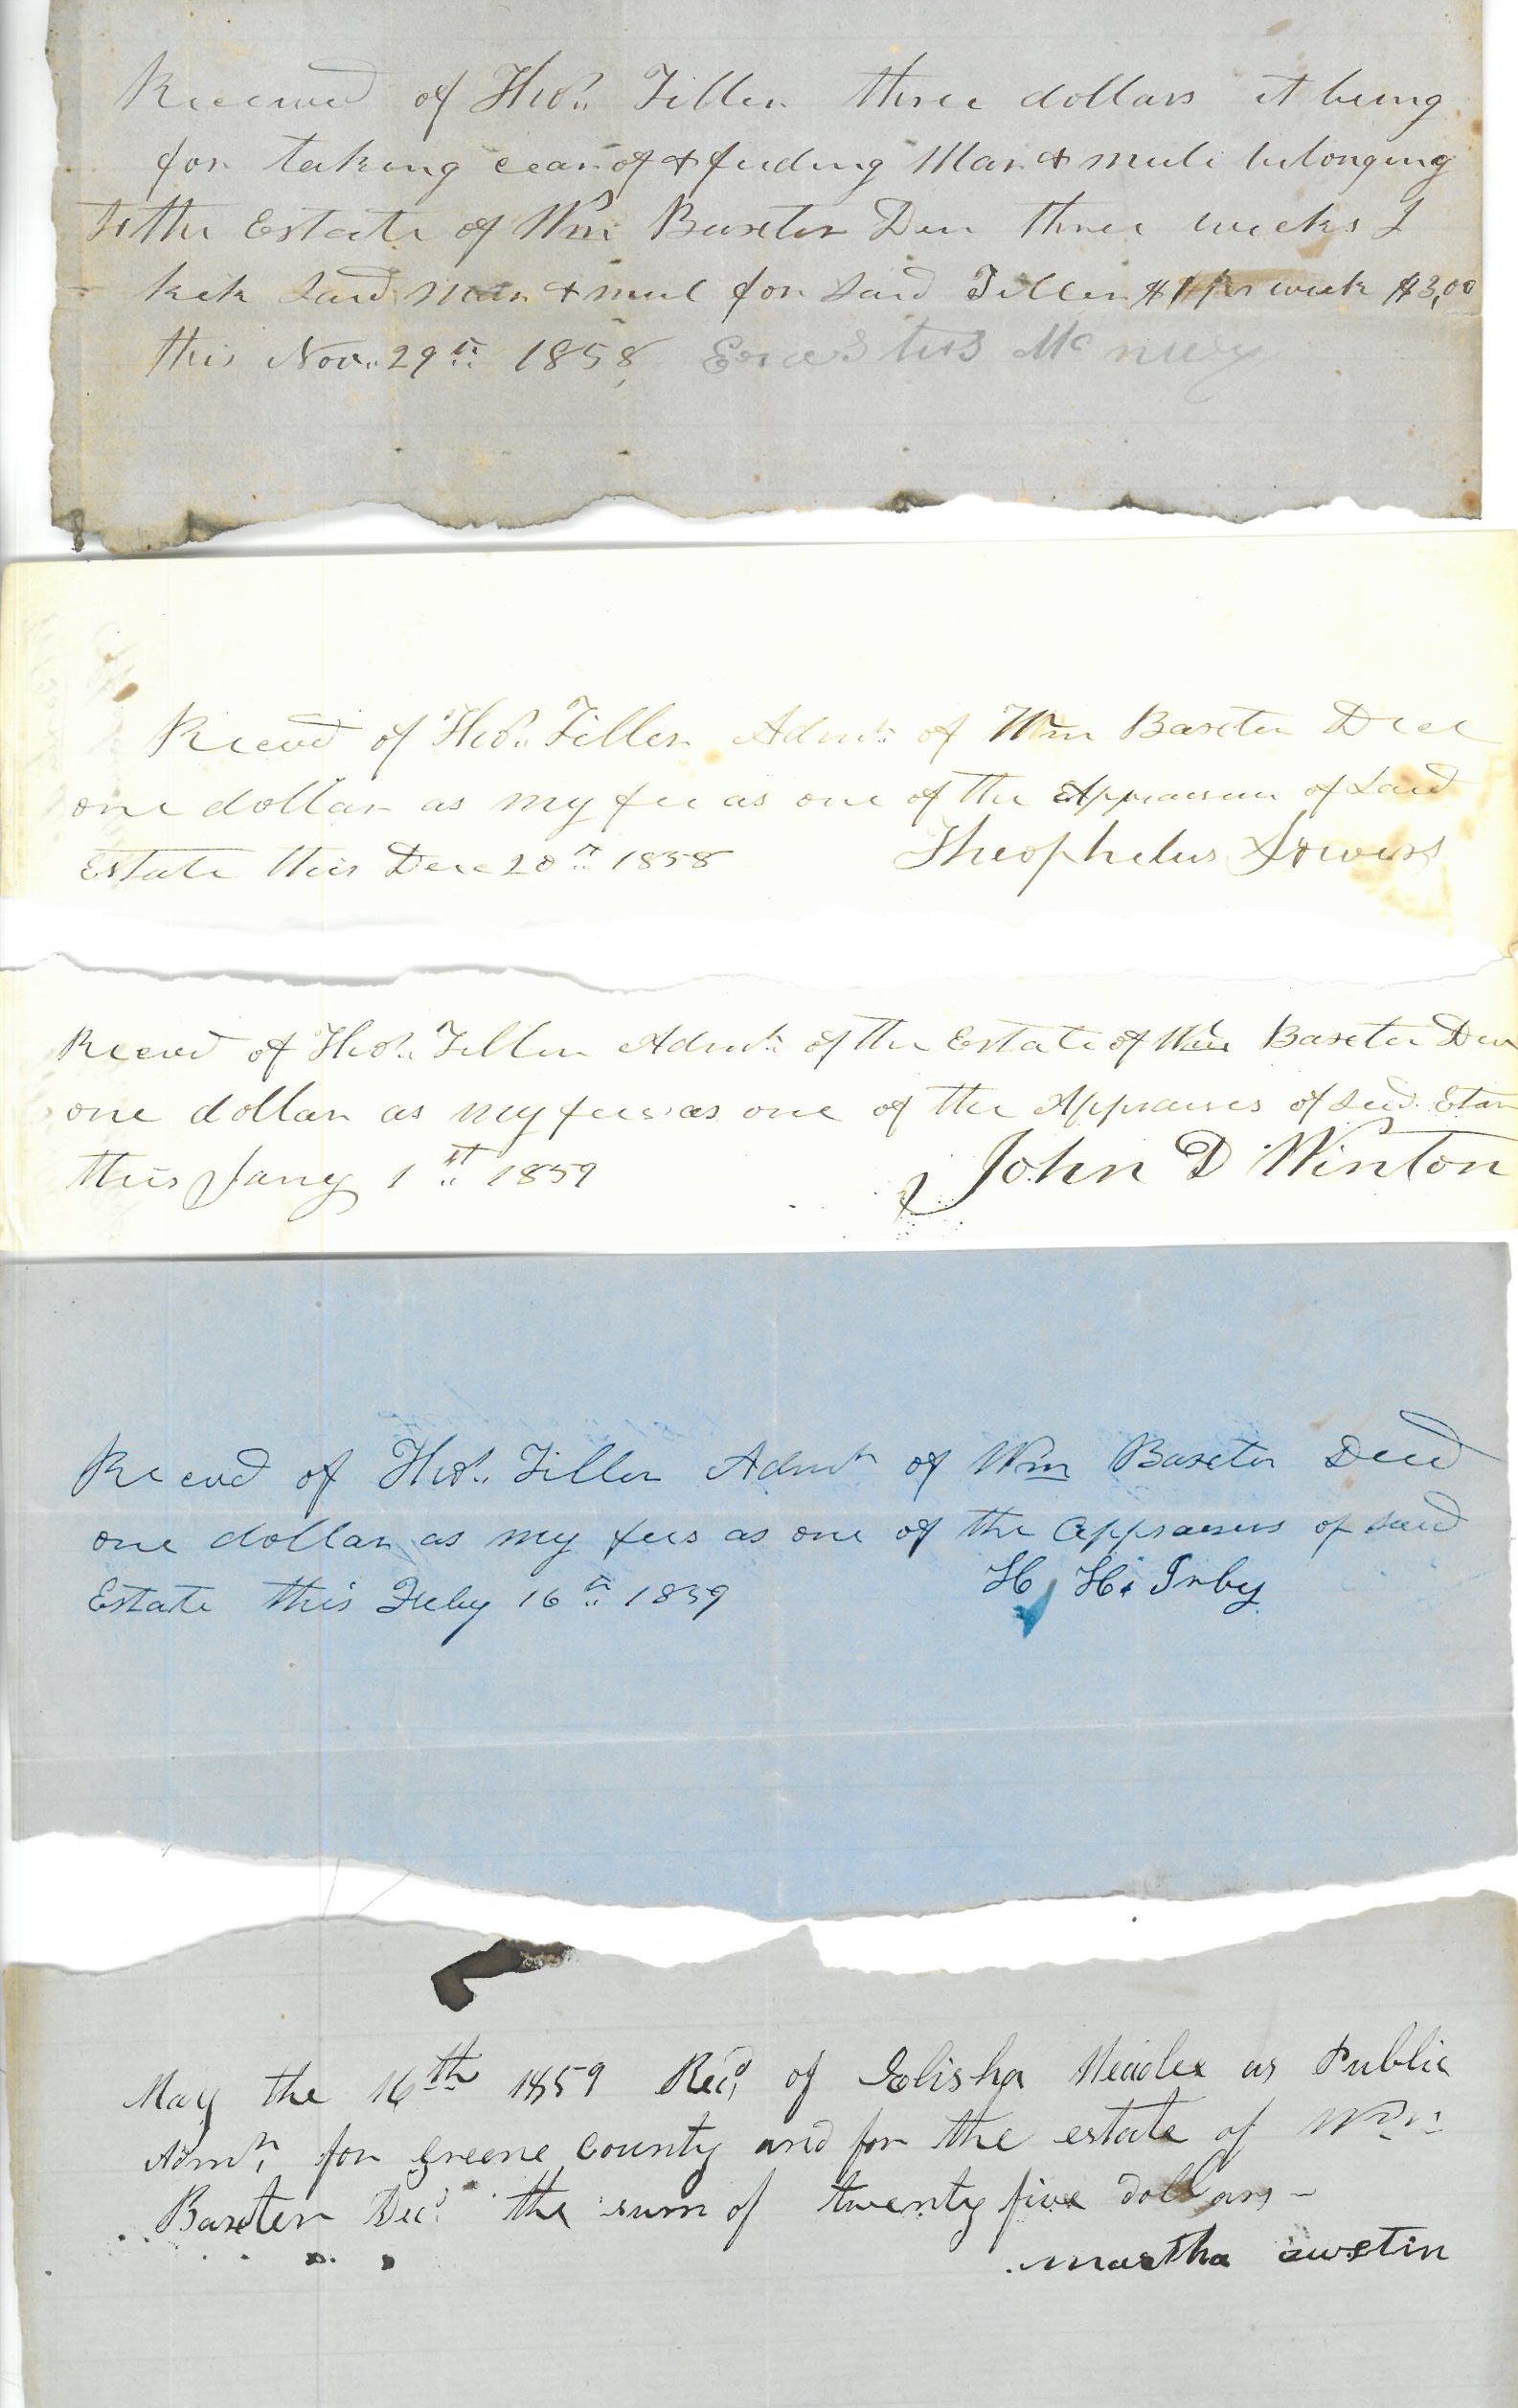 Received of Theo. Tiller three dollars it being
for taking cear of & feeding Mar & mule belonging
to the Estate of Wm Baxter Dec three weeks I
said Mar & mul for said Tiller $1 per week $3,00
this Nov. 29th 1858 Erastus
Recevd of Theo. Tiller Admr of Wm Baxter Dec
one dollar as my fee as one of the Appraisers of said
Estate this Dec 20th 1858 Theophelus Sowers
Recevd of Theo. Tiller Admr of the Estate of Wm Baxter Dec
one dollar as my fees as one of the Appraisers of sed Etat
this Jany 1st 1859 John D Winton
Recevd of Theo. Tiller Admr of Wm Baxter Decd
one dollar as my fees as one of the appraisers of said
Estate this Feby 16th 1859 H H. Irby
May the 16th 1859 Recd of Elisha Headlee as Public
Admr, for Greene County and for the estate of Wm
Baxter Dec. the sum of twenty five dollars -
martha awstin